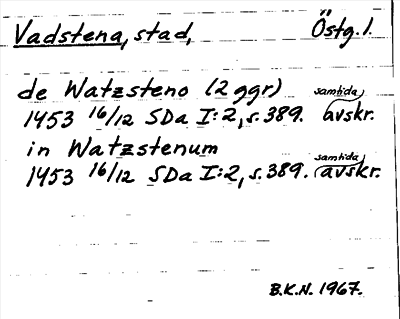 Vadstena, stad, Östg. l.
de Watzsteno (2 ggr)
1453 16/12 SDa I:2, s. 389. samtida avskr.
in Watzstenum
1453 16/12 SDa I:2, s. 389. samtida avskr.
B.K.N. 1967.